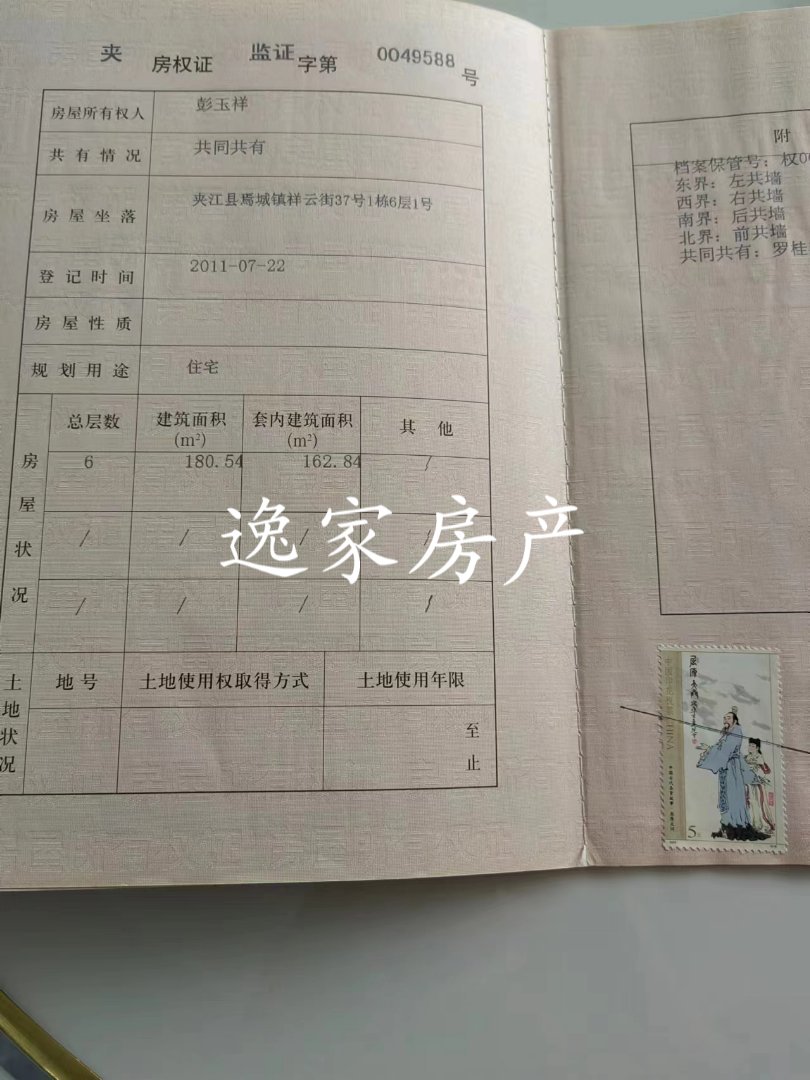 夹 房权证 监证 字第 0049588 号
房屋所有权人 彭玉祥
共有情况 共同共有
房屋坐落 夹江县焉城镇祥云街37号1栋6层1号
登记时间 2011-07-22
房屋性质
规划用途 住宅
房屋状况
总层数 建筑面积(m²) 套内建筑面积(m²) 其他
6 180.54 162.84 /
/ / / /
/ / / /
土地状况
地号 土地使用权取得方式 土地使用年限
至
止
附
档案保管号：权00
东界：左共墙
西界：右共墙
南界：后共墙
北界：前共墙
共同共有：罗桂
逸家房产
CHINA
5